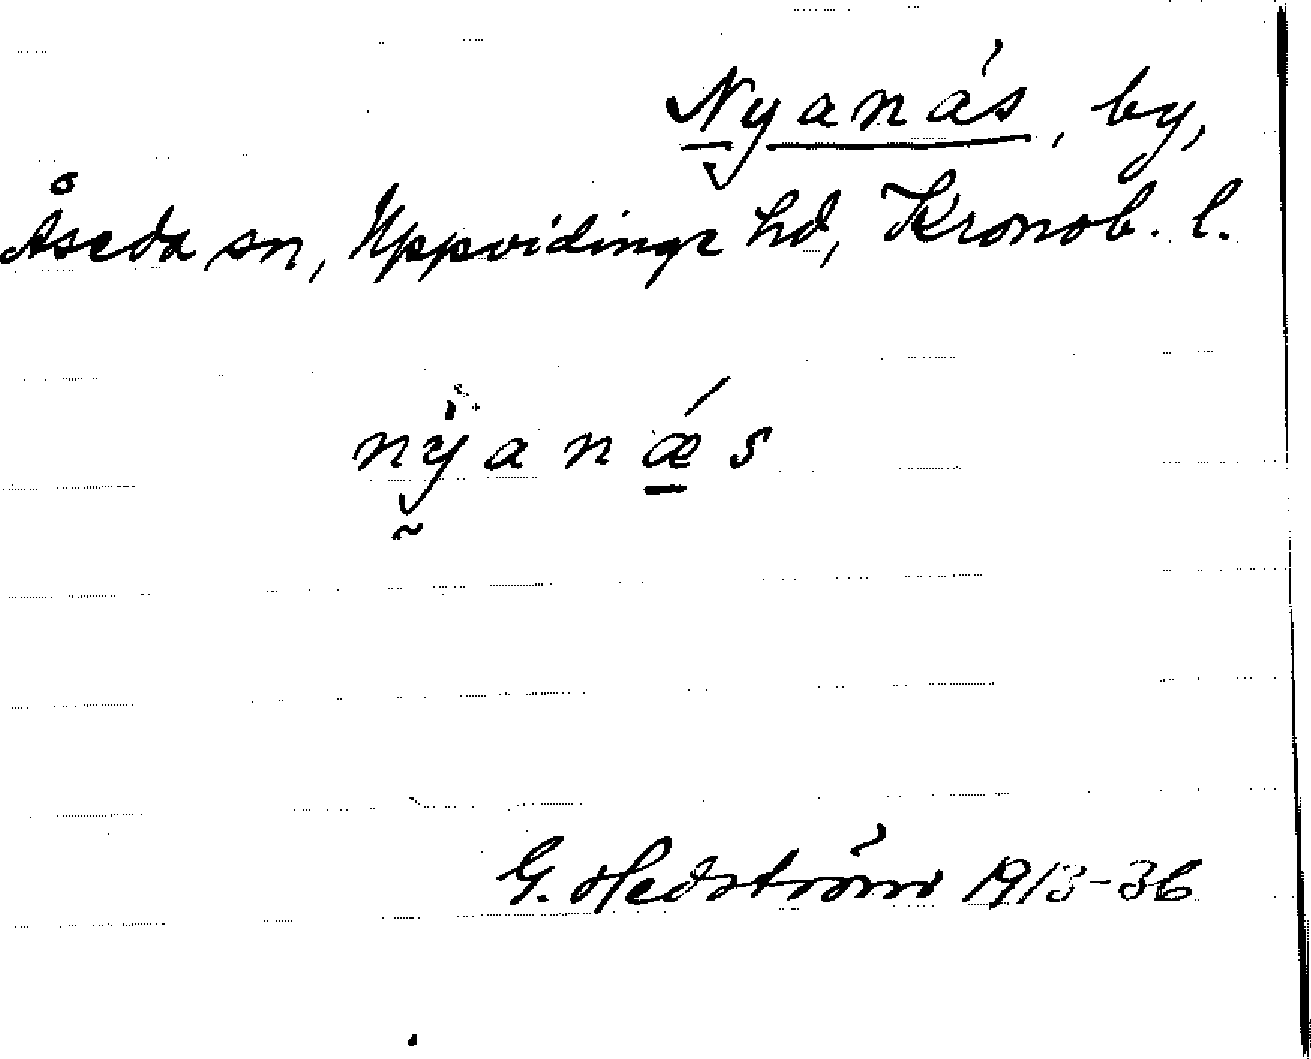 Nyanäs, by,
Åseda sn, Uppvidinge hd, Kronob. l.
nyanæ´s
G. Hedström 1913-36